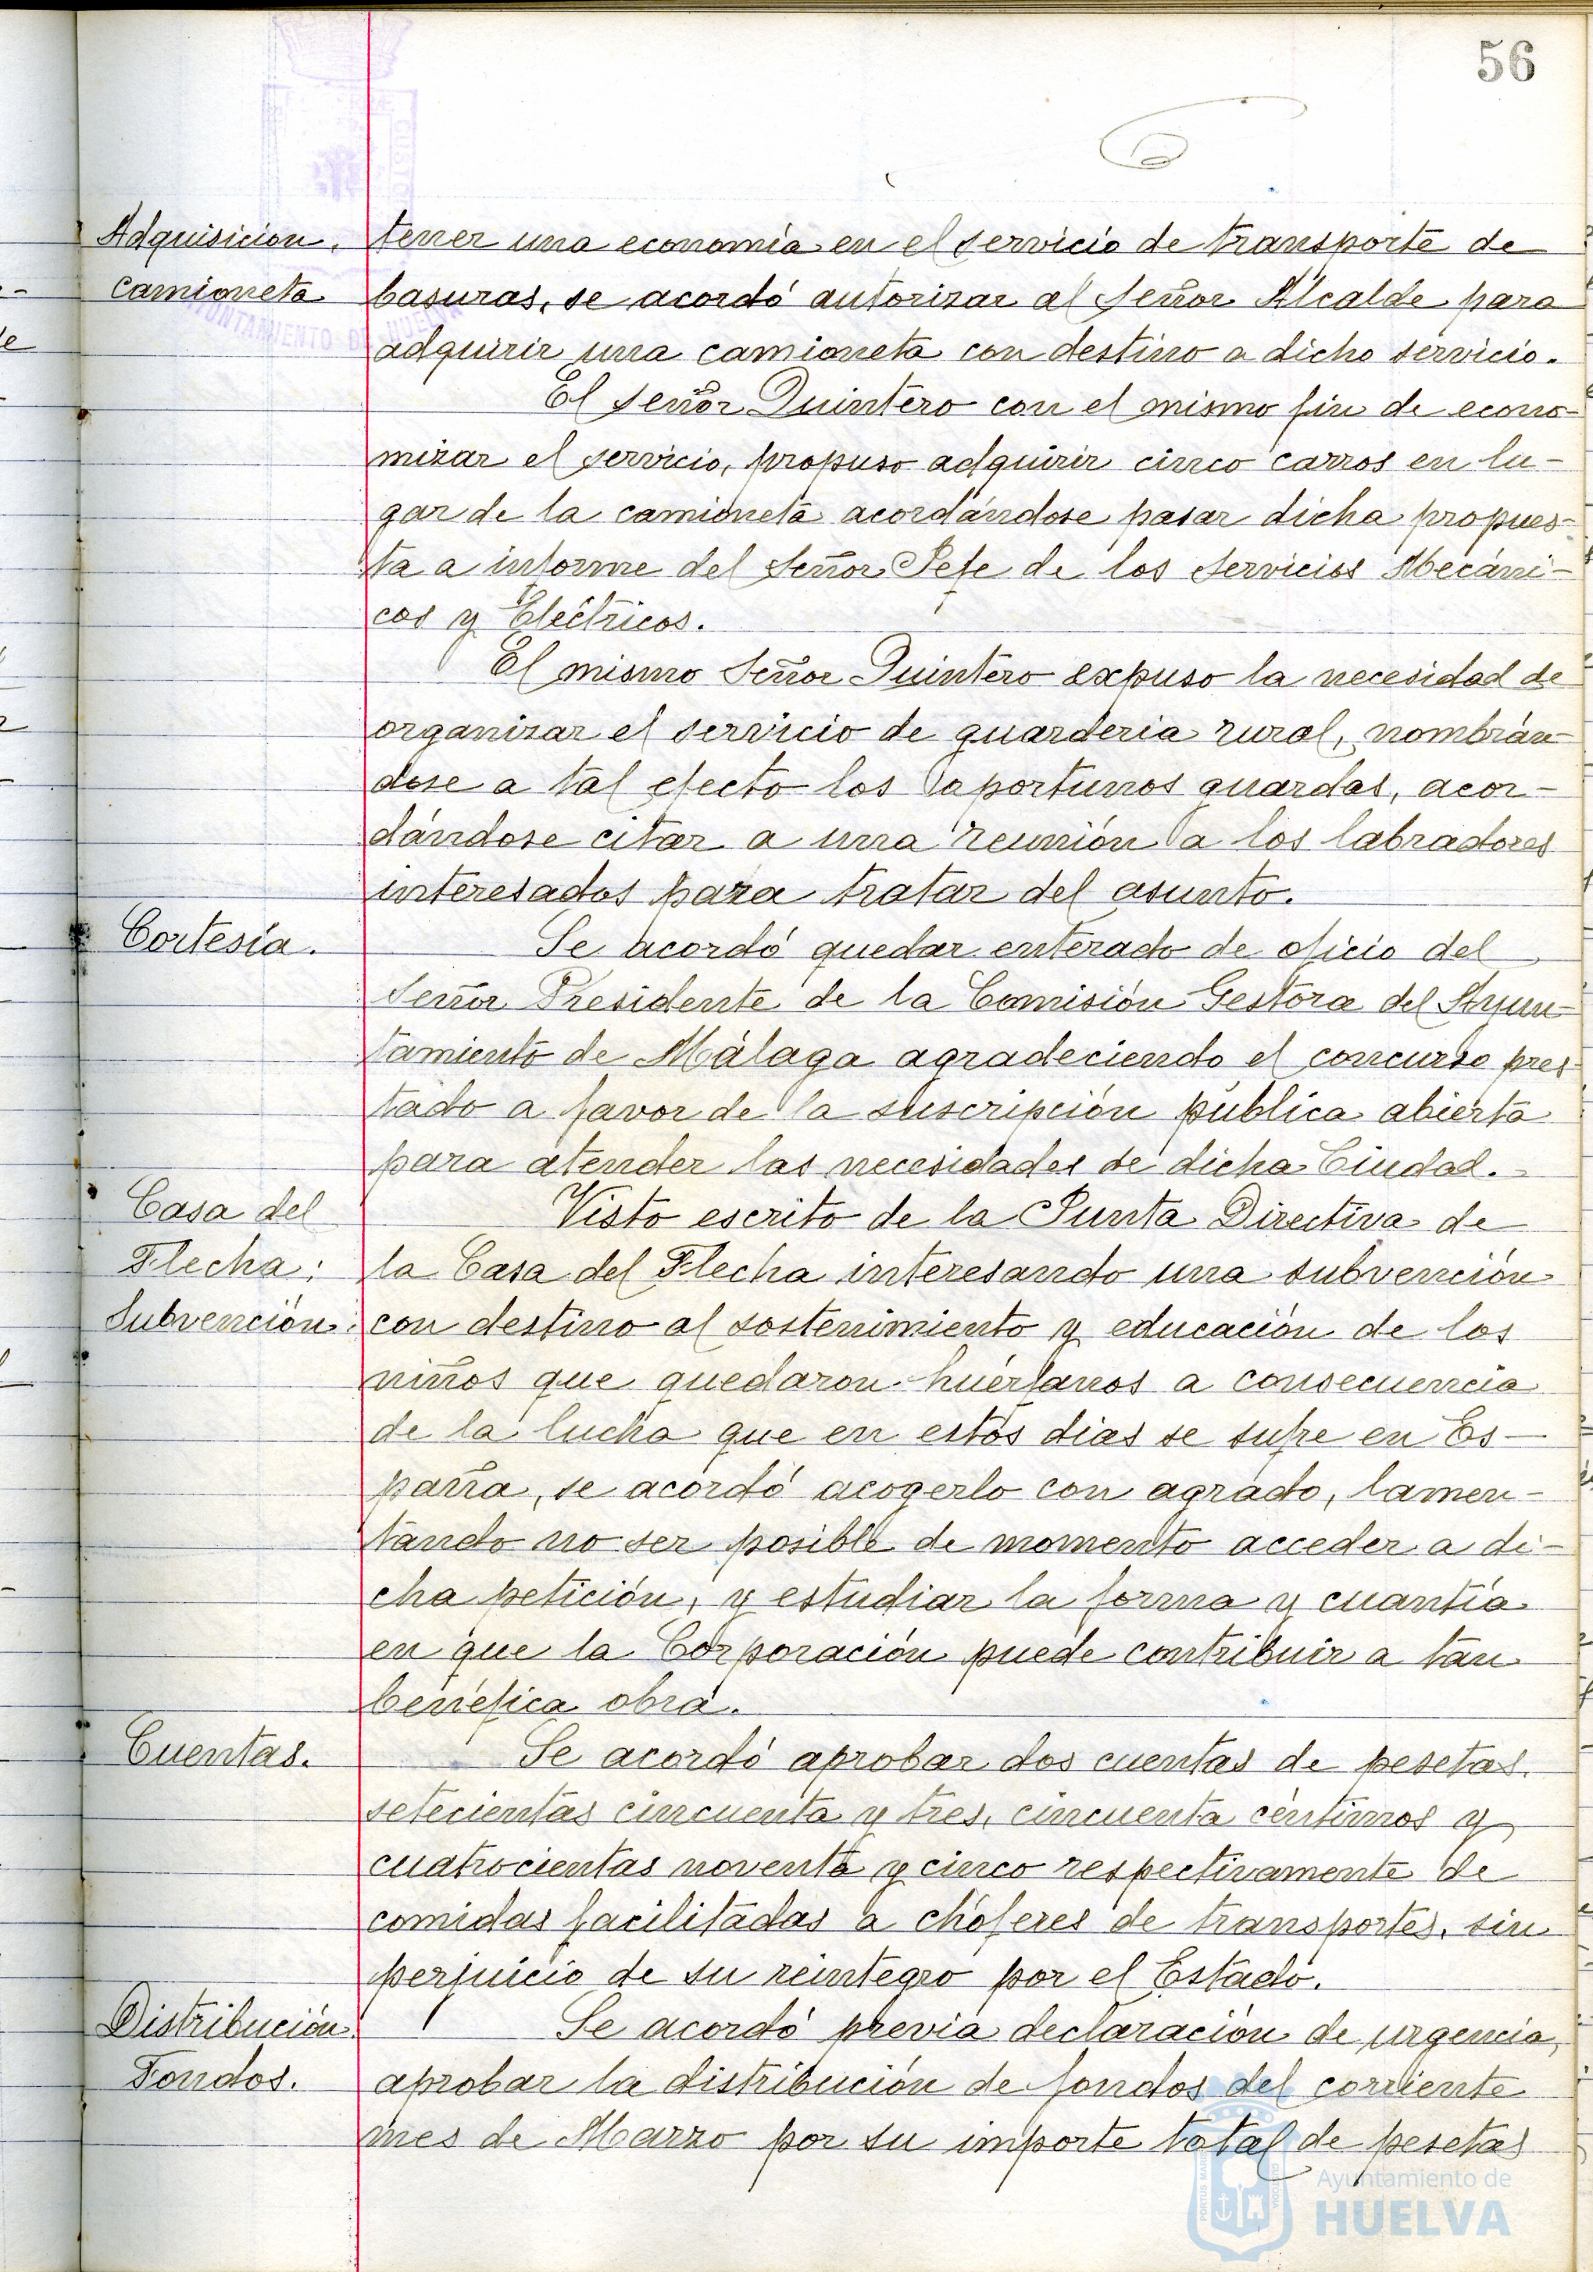 56
Adquisicion. tener una economía en el servicio de transporte de
Camioneta basuras, se acordó autorizar al Señor Alcalde para
adquirir una camioneta con destino a dicho servicio.
El Señor Quintero con el mismo fin de econo-
mizar el servicio, propuso adquirir cinco carros en lu-
gar de la camioneta acordándose pasar dicha propues-
ta a informe del Señor Jefe de los Servicios Mecáni-
cos y Eléctricos.
El mismo Señor Quintero expuso la necesidad de
organizar el servicio de guarderia rural, nombrán-
dose a tal efecto los oportunos guardas, acor-
dándose citar a una reunión a los labradores
interesados para tratar del asunto.
Cortesía. Se acordó quedar enterado de oficio del
Señor Presidente de la Comisión Gestora del Ayun-
tamiento de Málaga agradeciendo el concurso pres-
tado a favor de la suscripción pública abierta
para atender las necesidades de dicha Ciudad.=
Casa del Visto escrito de la Junta Directiva de
Flecha: la Casa del Flecha interesando una subvención
Subvención: con destino al sostenimiento y educación de los
niños que quedaron huérfanos a consecuencia
de la lucha que en estos dias se sufre en Es-
paña, se acordó acogerlo con agrado, lamen-
tando no ser posible de momento acceder a di-
cha petición, y estudiar la forma y cuantía
en que la Corporación puede contribuir a tan
benéfica obra.
Cuentas. Se acordó aprobar dos cuentas de pesetas
setecientas cincuenta y tres, cincuenta céntimos y
cuatrocientas noventa y cinco respectivamente de
comidas facilitadas a chóferes de transportes, sin
perjuicio de su reintegro por el Estado.
Distribución Se acordó previa declaración de urgencia,
Fondos. aprobar la distribución de fondos del corriente
mes de Marzo por su importe total de pesetas
Ayuntamiento de
HUELVA